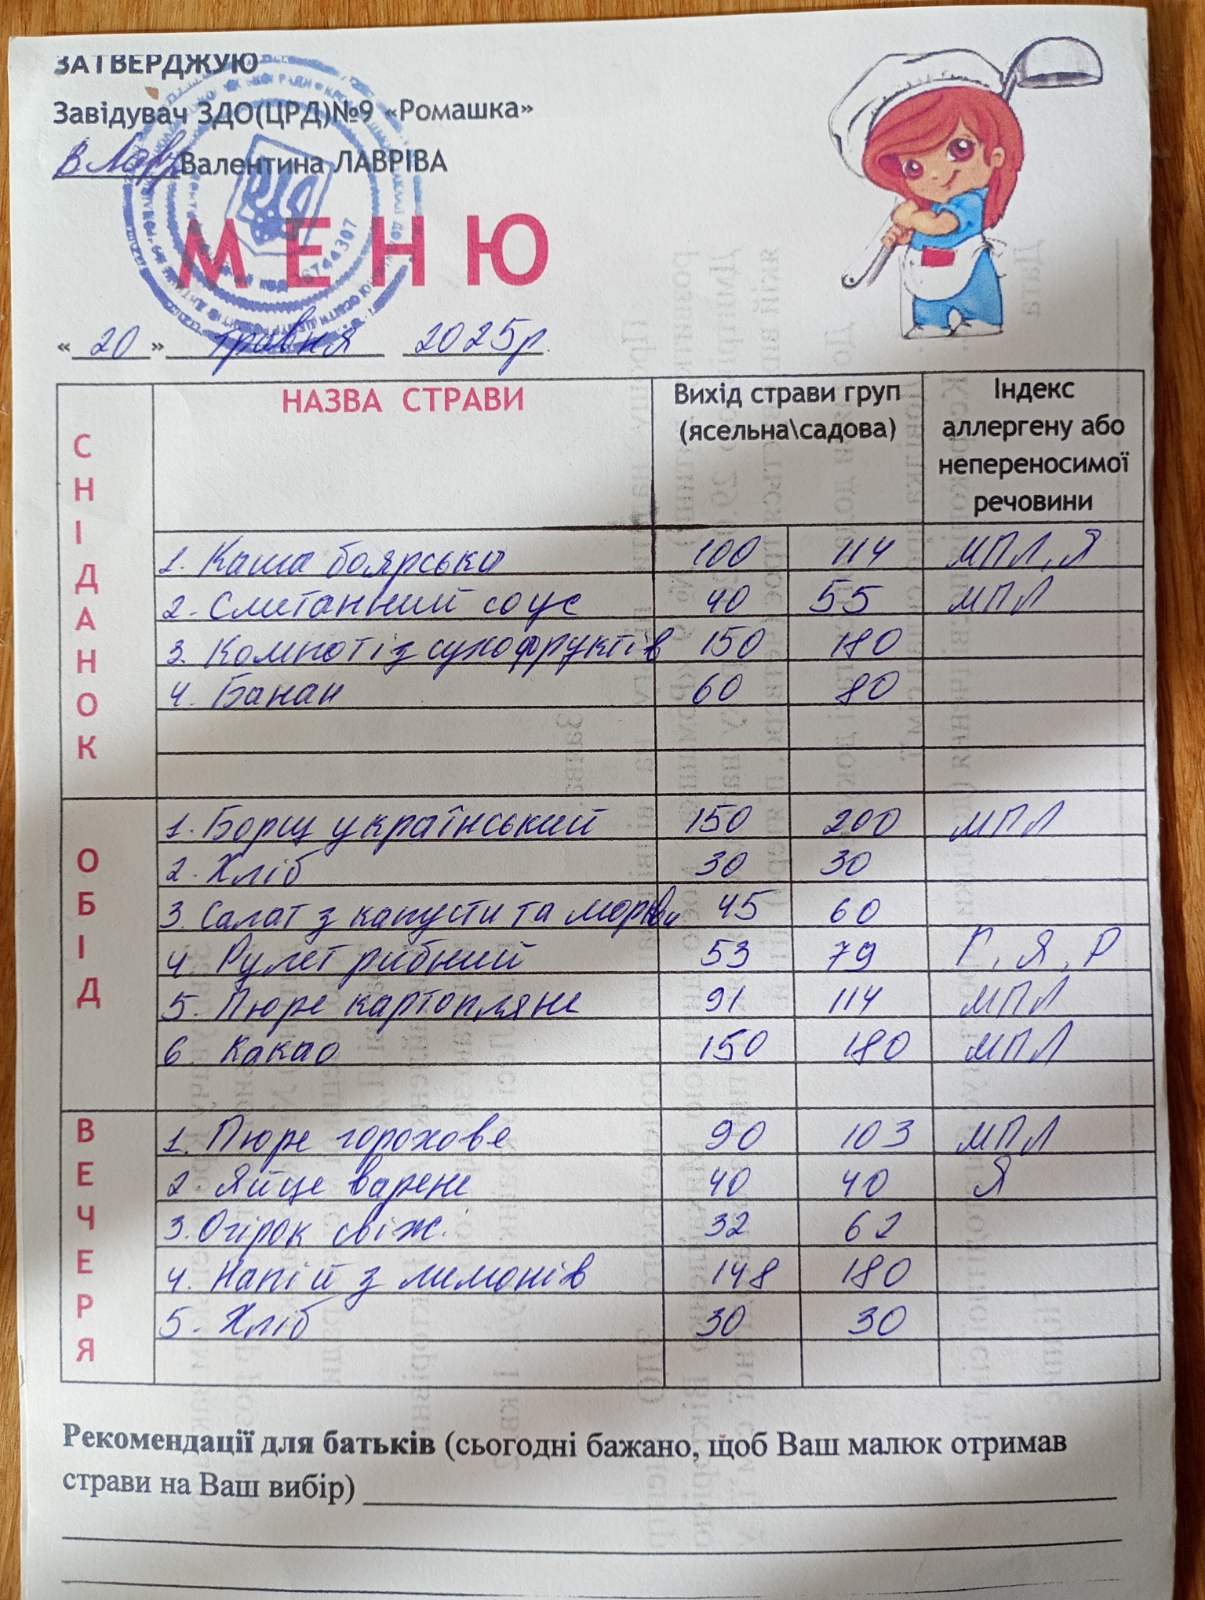 ЗАТВЕРДЖУЮ
Завідувач ЗДО(ЦРД)№9 «Ромашка»
В Лавр Валентина ЛАВРІВА
МЕНЮ
«20» травня 2025р.
НАЗВА СТРАВИ Вихід страви груп (ясельна\садова) Індекс аллергену або непереносимої речовини
СНІДАНОК
1. Каша боярська 100 114 МПЛ, Я
2. Сметанний соус 40 55 МПЛ
3. Компот із сухофруктів 150 180
4. Банан 60 80
ОБІД
1. Борщ український 150 200 МПЛ
2. Хліб 30 30
3. Салат з капусти та моркви 45 60
4 Рулет рибний 53 79 Г, Я, Р
5. Пюре картопляне 91 114 МПЛ
6 Какао 150 180 МПЛ
ВЕЧЕРЯ
1. Пюре горохове 90 103 МПЛ
2. Яйце варене 40 40 Я
3. Огірок свіж. 32 62
4. Напій з лимонів 148 180
5. Хліб 30 30
Рекомендації для батьків (сьогодні бажано, щоб Ваш малюк отримав
страви на Ваш вибір)